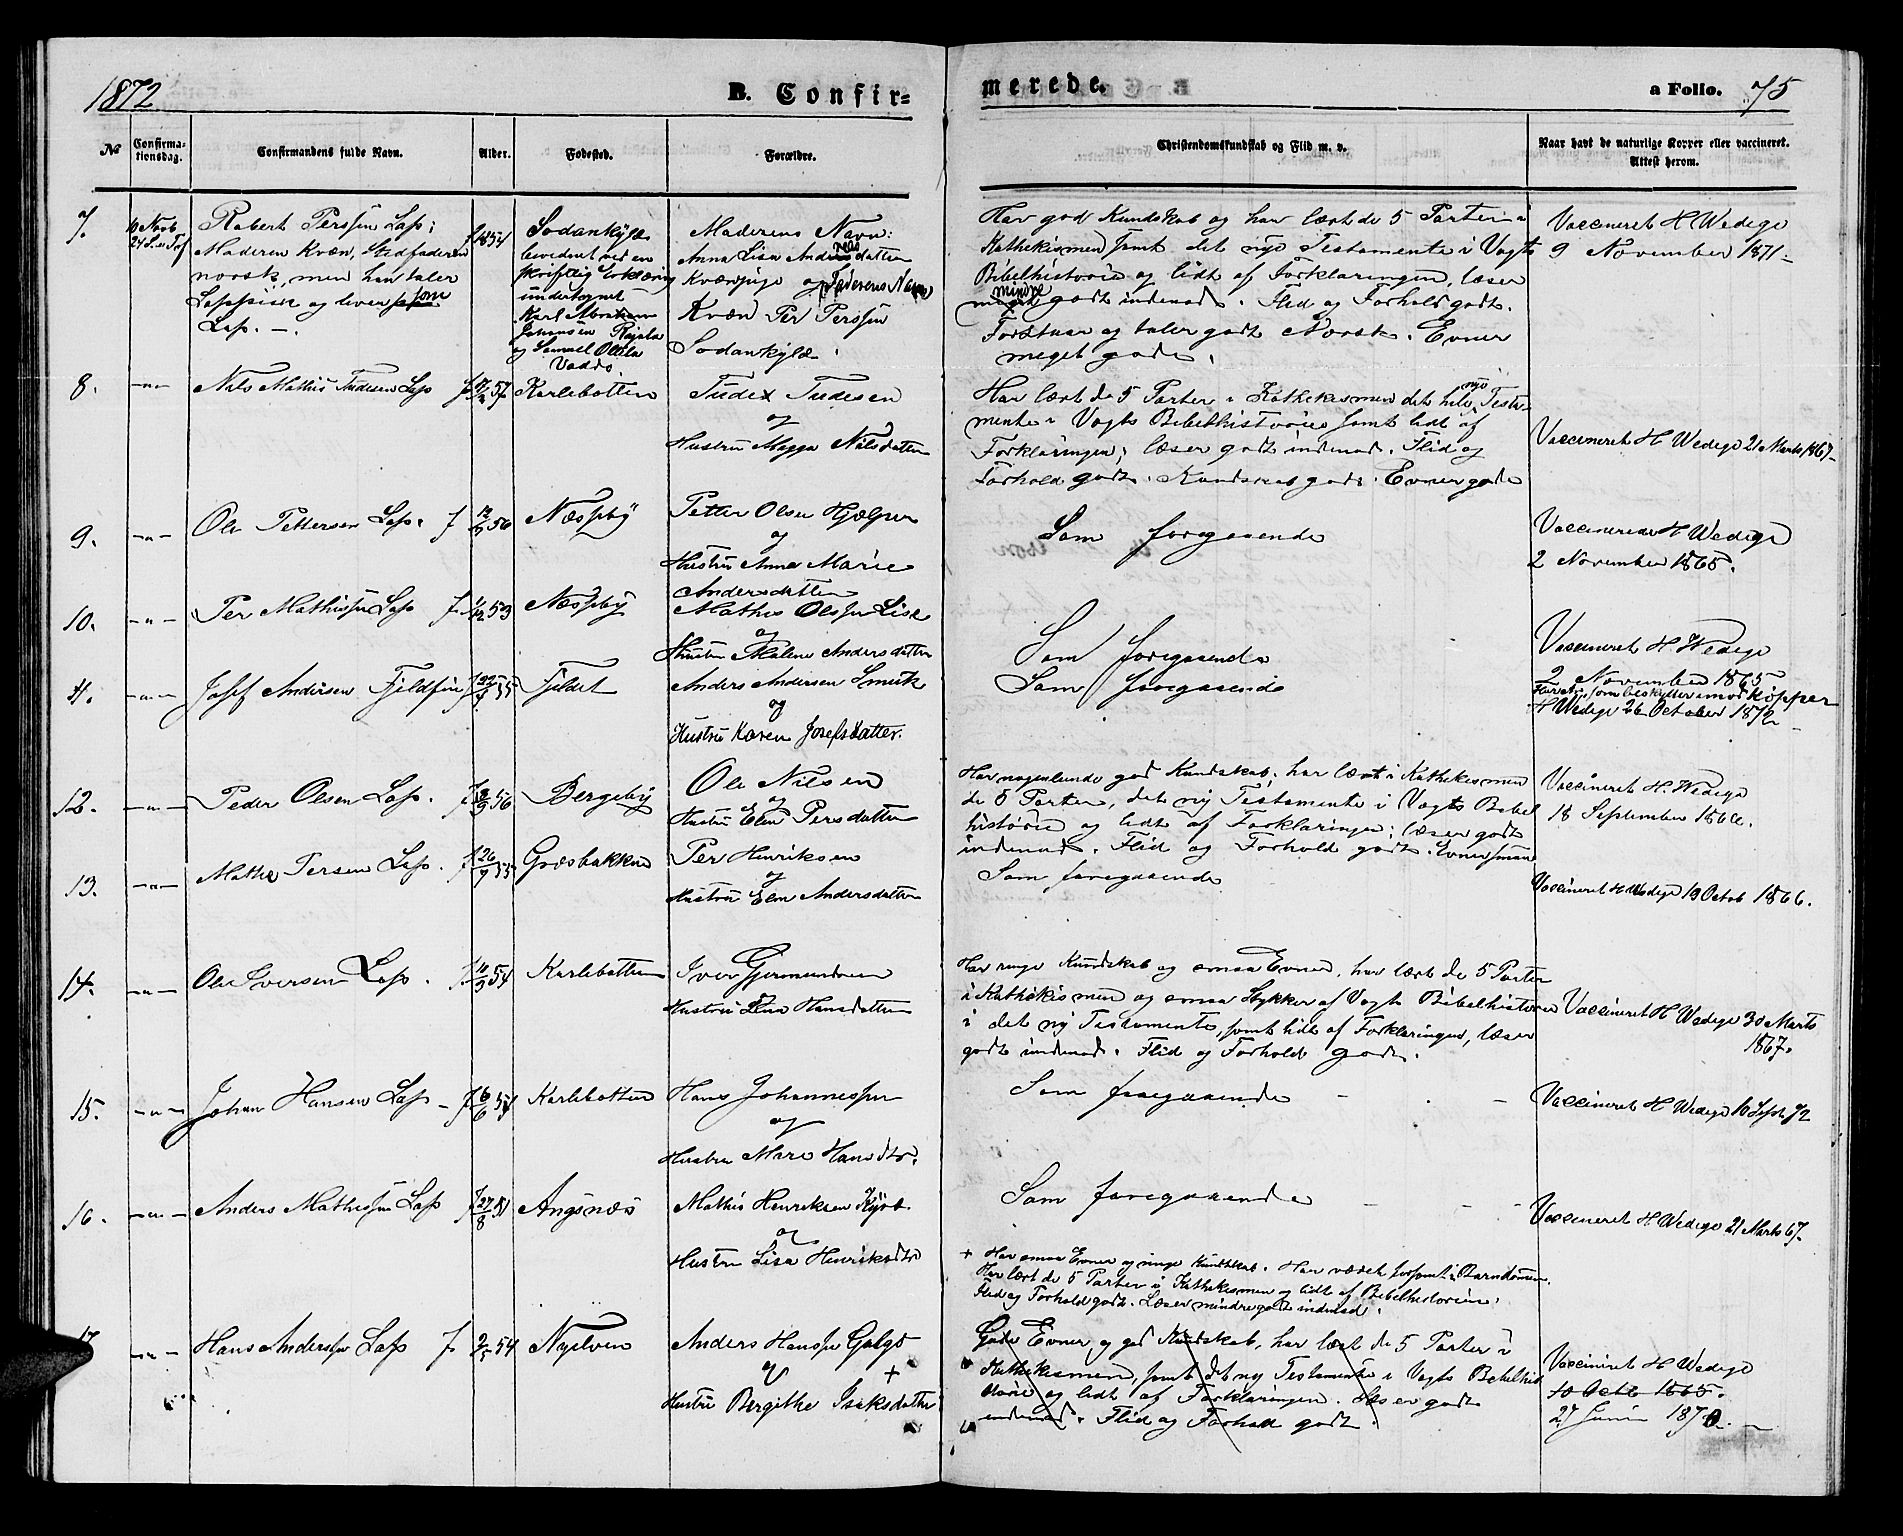 1872
B. Confir=
merede.
a Folio. 75
No
Confirma-
tionsdag.
Confirmandens fulde Navn.
Alder.
Fødested.
Forældre.
Christendomskundskab og Flid m. v.
Naar havt de naturlige Kopper eller vaccineret.
Attest herom.
7.
Robert Perssen Lap;
Moderen Kvæn, Stedfaderen
norsk, men hin taler
Lappisk og lever som
Lap. -
1854
Sodankylæ
bevidnet ved en
skriftlig Erklæring
undertegnet
Karl Abraham
Johansen Rajala
og Samuel Ollila
Vadsø.
Moderens Navn:
Anna Lisa Andersdatten
Kvænpige og Faderens Navn
Kvæn Per Perssen
Sodankylæ.
Har god Kundskab og har lært de 5 Parter i
Kathekismen samt det nye Testamente i Vogts
Bibelhistorie og lidt af Forklaringen, læser
mindre godt indenad. Flid og Forhold godt.
Forstaar og taler godt Norsk. Evner
meget gode.
Vaccineret H Wedege
9 November 1871-
8.
-"-
Nils Mathis Tudesen Lap
57
Karlebotten
Tude Tudesen
og
Hustru Magga Nilsdatten
Har lært de 5 Parter i Kathekismen det hele nye Testa-
mente i Vogts Bibelhistorie samt lidt af
Forklaringen; læser godt indenad. Flid og
Forhold godt. Kundskab god. Evner gode
Vaccineret H Wedege 21 Marts 1867-
9.
-"-
Ole Pettersen Lap. f
56
Næsseby
Petter Olsen Hjelper
og
Hustru Anna Marie
Andersdatten
Som foregaaende
Vaccinerede H Wedege
2 November 1865.
10.
-"-
Per Mathissen Lap f
53
Næsseby
Mathis Olssen Lisk
og
Hustru Malene Andersdatten
Som foregaaende
Vaccineret H. Wedege
2 November 1865
11.
-"-
Josef Andersen Fjeldfin
55
Fjeldet
Anders Andersen Smuk
og
Hustru Karen Josefsdatter.
Som foregaaende
som beskytter imod Kopper
H Wedege 26 October 1872-
12.
-"-
Peder Olsen Lap.
56
Bergeby
Ole Nilsen
og
Hustru Elen Persdatten
Har nogenlunde god Kundskab, har lært i Kathekismen
de 5 Parter, det ny Testamente i Vogts Bibel
historie og lidt af Forklaringen; læser godt
indenad. Flid og Forhold godt. Evner smaa
Vaccineret H. Wedege
18 September 1866.
13.
-"-
Mathis Persen Lap.
26/9 55
Græsbakken
Per Henriksen
og
Hustru Elen Andersdatten
Som foregaaende
Vaccineret H Wedege 19 Octob 1866.
14.
-"-
Ole Iversen Lap.
54
Karlebotten
Iver Gjermundsen
Hustru Lina Hansdatten
Har ringe Kundskab og smaa Evner, har lært de 5 Parter
i Kathekismen og smaa Stykker af Vogts Bibelhistorie
i det ny Testamente, samt lidt af Forklaringen, læser
godt indenad. Flid og Forhold godt.
Vaccineret H Wedege 30 Marts
1867.
15.
-"-
Johan Hansen Lap -
6/6 54
Karlebotten
Hans Johannessen
og
Hustru Mare Hansdtr.
Som foregaaende
Vaccineret H Wedege 16 Sept 72
16.
-"-
Anders Mathissen Lap
27/8 51
Angsnæs
Mathis Henriksen
og
Hustru Lisa Henriksdtr
Som foregaaende
Vaccineret H Wedege 21 Marts 67.
+ Har smaa Evner og ringe Kundskab. Har været forsømt i Barndommen.
Har lært de 5 Parter i Kathekismen og lidt af Bibelhistorien.
Flid og Forhold godt. Læser mindre godt indenad.
17
-"-
Hans Anderssen Lap f
54
Nyelven
Anders Hanssen Galgo
og +
Hustru Bergithe Isaksdatter
Gode Evner og god Kundskab, har lært de 5 Parter i
Kathekismen, samt det ny Testamente i Vogts Bibelhis
torie og lidt af Forklaringen. Læser godt
indenad. Flid og Forhold godt.
Vaccineret H Wedege
10 Octb 1865.
27 Junii 1870. -